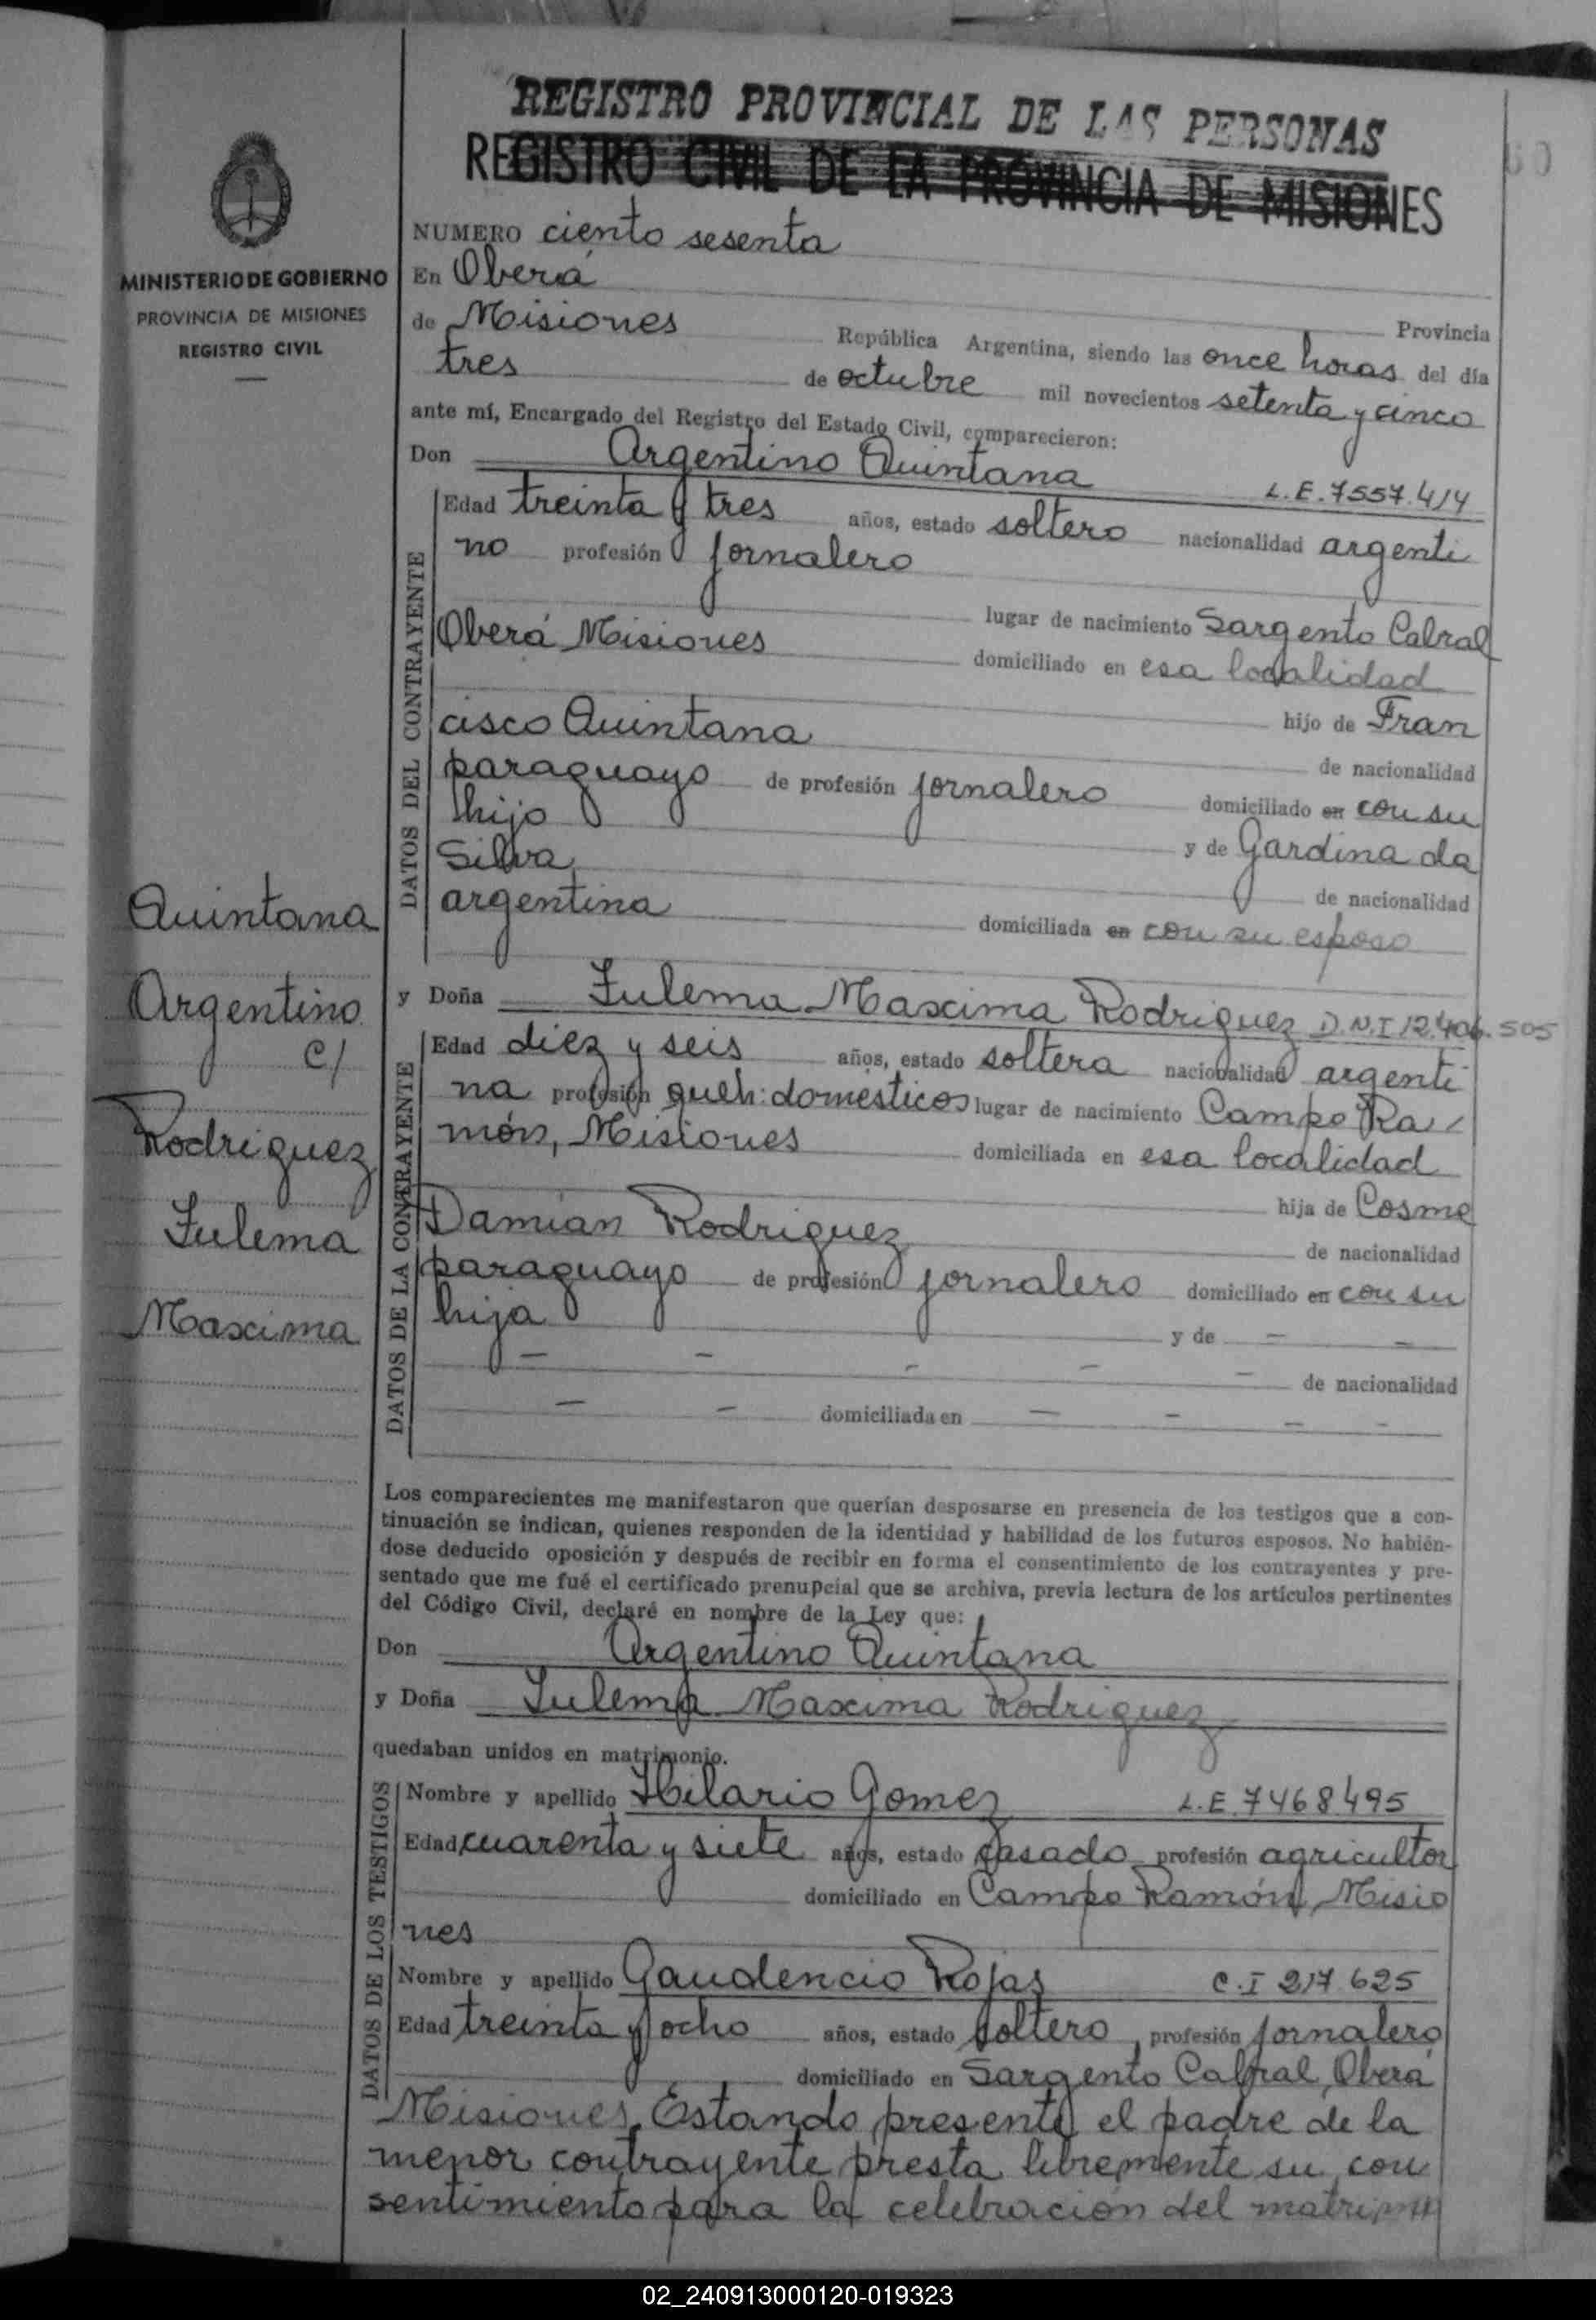 REGISTRO PROVINCIAL DE LAS PERSONAS
REGISTRO CIVIL DE LA PROVINCIA DE MISIONES
60
MINISTERIO DE GOBIERNO
PROVINCIA DE MISIONES
REGISTRO CIVIL
NUMERO ciento sesenta
En Oberá
Provincia
de Misiones República Argentina, siendo las once horas del día
tres de octubre mil novecientos setenta y cinco
ante mí, Encargado del Registro del Estado Civil, comparecieron:
Don Argentino Quintana L.E. 7557.414
DATOS DEL CONTRAYENTE
Edad treinta y tres años, estado soltero nacionalidad argenti
no profesión jornalero
lugar de nacimiento Sargento Cabral
Oberá Misiones domiciliado en esa localidad
hijo de Fran
cisco Quintana de nacionalidad
paraguayo de profesión jornalero domiciliado en con su
hijo y de Gardina da
Silva de nacionalidad
argentina domiciliada en con su esposo
Quintana
Argentino
c/
Rodriguez
Zulema
Maxima
y Doña Zulema Maxima Rodriguez D.N.I 12.406.505
DATOS DE LA CONTRAYENTE
Edad diez y seis años, estado soltera nacionalidad argenti
na profesión queh: domésticos lugar de nacimiento Campo Ra
món, Misiones domiciliada en esa localidad
hija de Cosme
Damián Rodriguez de nacionalidad
paraguayo de profesión jornalero domiciliado en con su
hija y de — —
— — — — — de nacionalidad
— — domiciliada en — — — —
Los comparecientes me manifestaron que querían desposarse en presencia de los testigos que a con-
tinuación se indican, quienes responden de la identidad y habilidad de los futuros esposos. No habién-
dose deducido oposición y después de recibir en forma el consentimiento de los contrayentes y pre-
sentado que me fué el certificado prenupcial que se archiva, previa lectura de los artículos pertinentes
del Código Civil, declaré en nombre de la Ley que:
Don Argentino Quintana
y Doña Zulema Maxima Rodriguez
quedaban unidos en matrimonio.
DATOS DE LOS TESTIGOS
Nombre y apellido Hilario Gomez L.E. 7468495
Edad cuarenta y siete años, estado casado profesión agricultor
domiciliado en Campo Ramón, Misio
nes
Nombre y apellido Gaudencio Rojas C.I 217.625
Edad treinta y ocho años, estado soltero, profesión jornalero
domiciliado en Sargento Cabral, Oberá
Misiones. Estando presente el padre de la
menor contrayente presta libremente su con
sentimiento para la celebración del matrimo
02_240913000120-019323